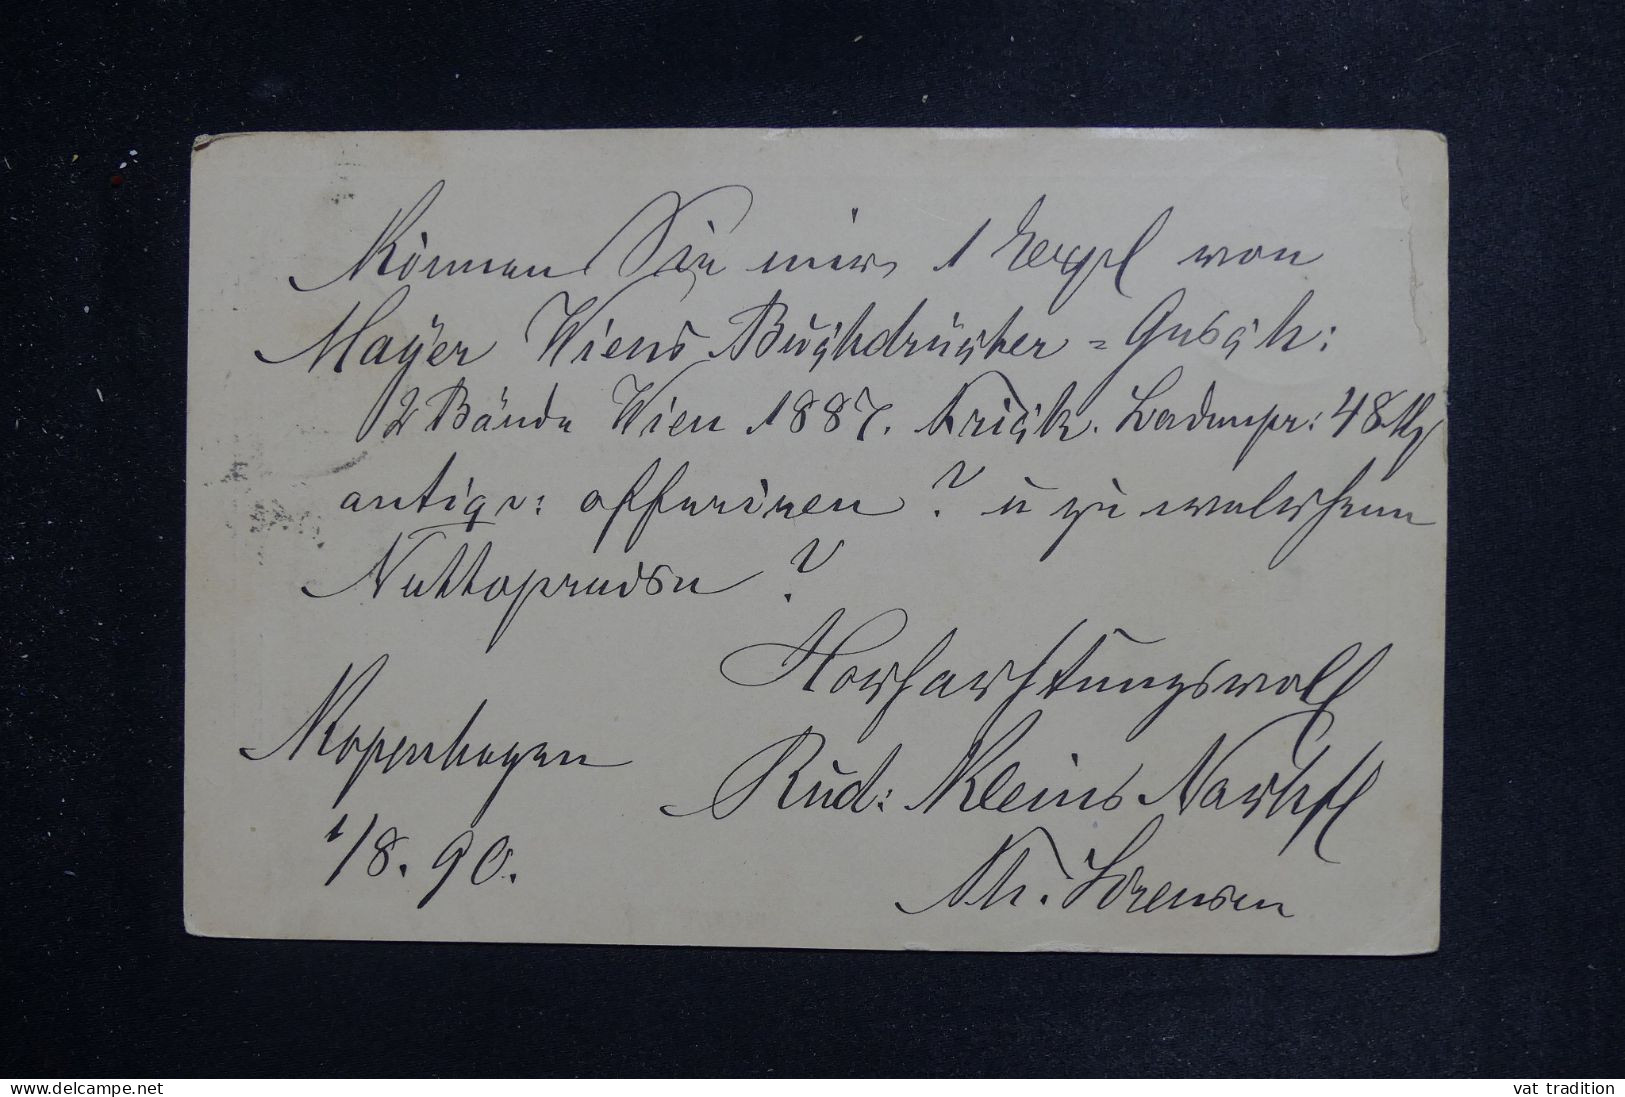 Können Sie mir 1 Expl von
Mayer Wiens Buchdrucker = Gesch:
2 Bände Wien 1887. Frick. Ladenpr: 48 M
antiqu: offeriren? u zu welchem
Nettopreise?
Hochachtungsvoll
Kopenhagen
Rud: Kleins Nachfl
1/8. 90.
Th. Sörensen
www.delcampe.net
vat tradition